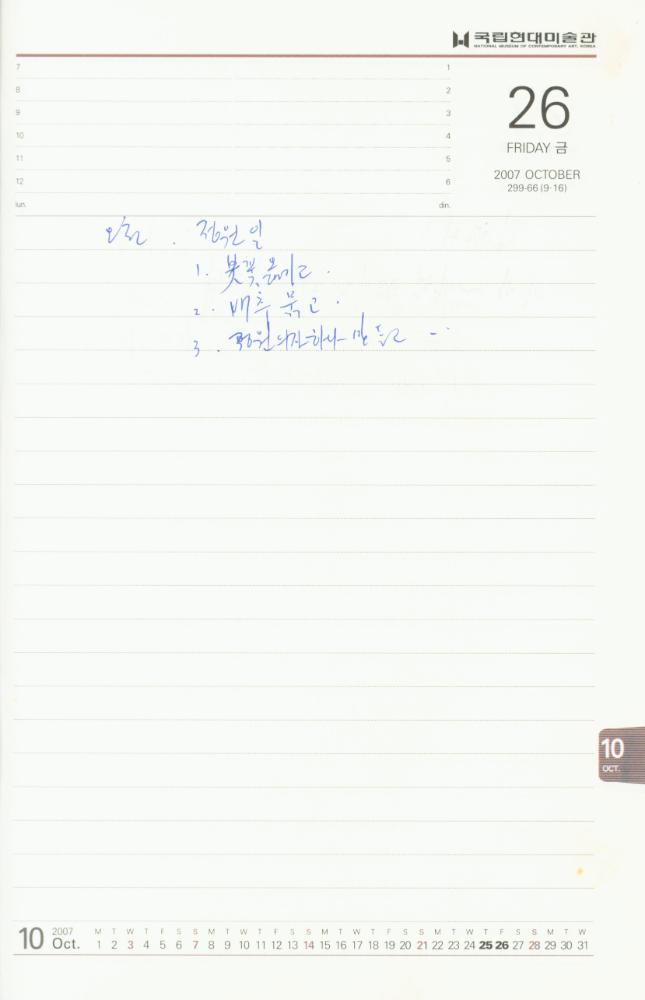 국립현대미술관
NATIONAL MUSEUM OF CONTEMPORARY ART, KOREA
7
8
9
10
11
12
lun.
1
2
3
4
5
6
din.
26
FRIDAY 금
2007 OCTOBER
299-66 (9·16)
오전 . 정원일
1. 붓꽃 옮기고 .
2. 배추 묶고 .
3. 정원의자 하나 만들고 - ·
10
OCT.
10 2007 Oct.
M T W T F S S M T W T F S S M T W T F S S M T W T F S S M T W
1 2 3 4 5 6 7 8 9 10 11 12 13 14 15 16 17 18 19 20 21 22 23 24 25 26 27 28 29 30 31